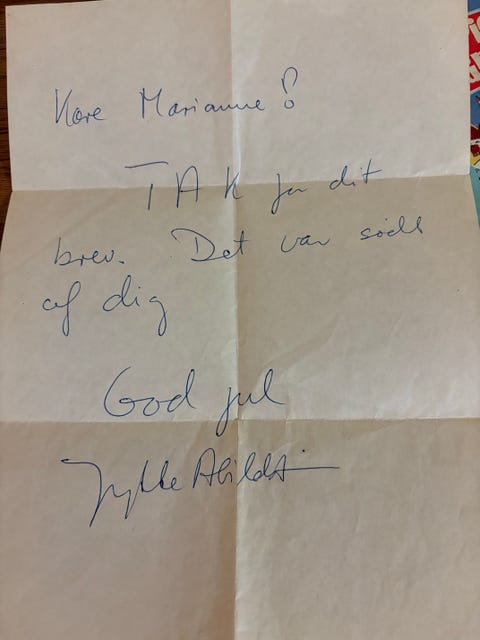 Kære Marianne!
TAK for dit
brev. Det var sødt
af dig
God jul